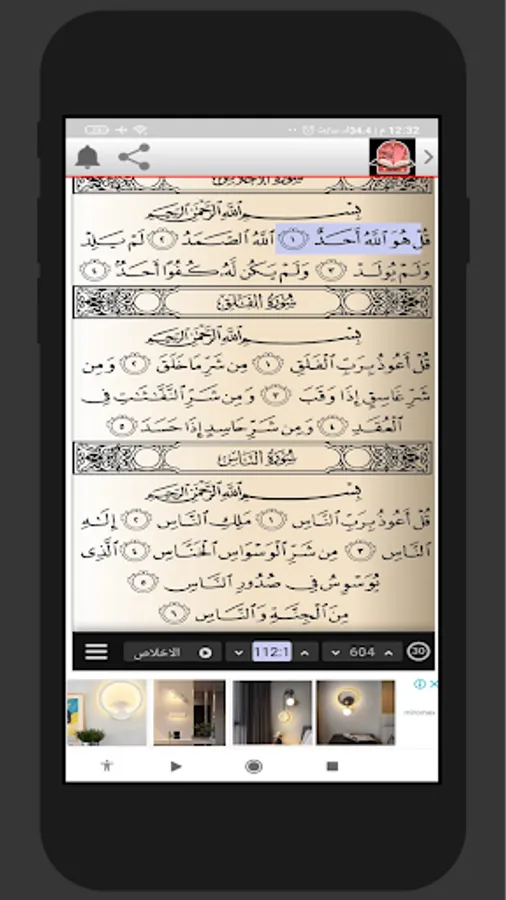 12:32 م | 34.4
سورة الإخلاص
بِسْمِ ٱللَّهِ ٱلرَّحْمَٰنِ ٱلرَّحِيمِ
قُلْ هُوَ ٱللَّهُ أَحَدٌ ١ ٱللَّهُ ٱلصَّمَدُ ٢ لَمْ يَلِدْ
وَلَمْ يُولَدْ ٣ وَلَمْ يَكُن لَّهُۥ كُفُوًا أَحَدٌۢ ٤
سُورَةُ الفَلَقِ
بِسْمِ ٱللَّهِ ٱلرَّحْمَٰنِ ٱلرَّحِيمِ
قُلْ أَعُوذُ بِرَبِّ ٱلْفَلَقِ ١ مِن شَرِّ مَا خَلَقَ ٢ وَمِن
شَرِّ غَاسِقٍ إِذَا وَقَبَ ٣ وَمِن شَرِّ ٱلنَّفَّٰثَٰتِ فِى
ٱلْعُقَدِ ٤ وَمِن شَرِّ حَاسِدٍ إِذَا حَسَدَ ٥
سُورَةُ النَّاسِ
بِسْمِ ٱللَّهِ ٱلرَّحْمَٰنِ ٱلرَّحِيمِ
قُلْ أَعُوذُ بِرَبِّ ٱلنَّاسِ ١ مَلِكِ ٱلنَّاسِ ٢ إِلَٰهِ
ٱلنَّاسِ ٣ مِن شَرِّ ٱلْوَسْوَاسِ ٱلْخَنَّاسِ ٤ ٱلَّذِى
يُوَسْوِسُ فِى صُدُورِ ٱلنَّاسِ ٥
مِنَ ٱلْجِنَّةِ وَٱلنَّاسِ ٦
30 604 112:1 الاخلاص